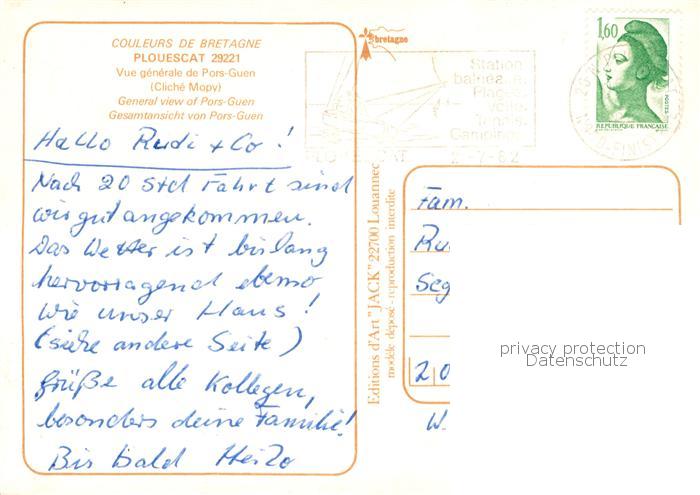 COULEURS DE BRETAGNE
PLOUESCAT 29221
Vue générale de Pors-Guen
(Cliché Mopy)
General view of Pors-Guen
Gesamtansicht von Pors-Guen
Hallo Rudi + Co!
Nach 20 Std Fahrt sind
wir gut angekommen.
Das Wetter ist bislang
hervorragend ebenso
wie unser Haus!
(siehe andere Seite)
Grüße alle Kollegen,
besonders deine Familie!
Bis bald Heiko
bretagne
Station
balnéaire
Plages
voile
tennis
Camping
2-7-82
1,60
POSTES
REPUBLIQUE FRANÇAISE
Editions d'Art "JACK" 22700 Louannec
modèle déposé - reproduction interdite
Fam.
Ru
Seg
210
W.
privacy protection
Datenschutz